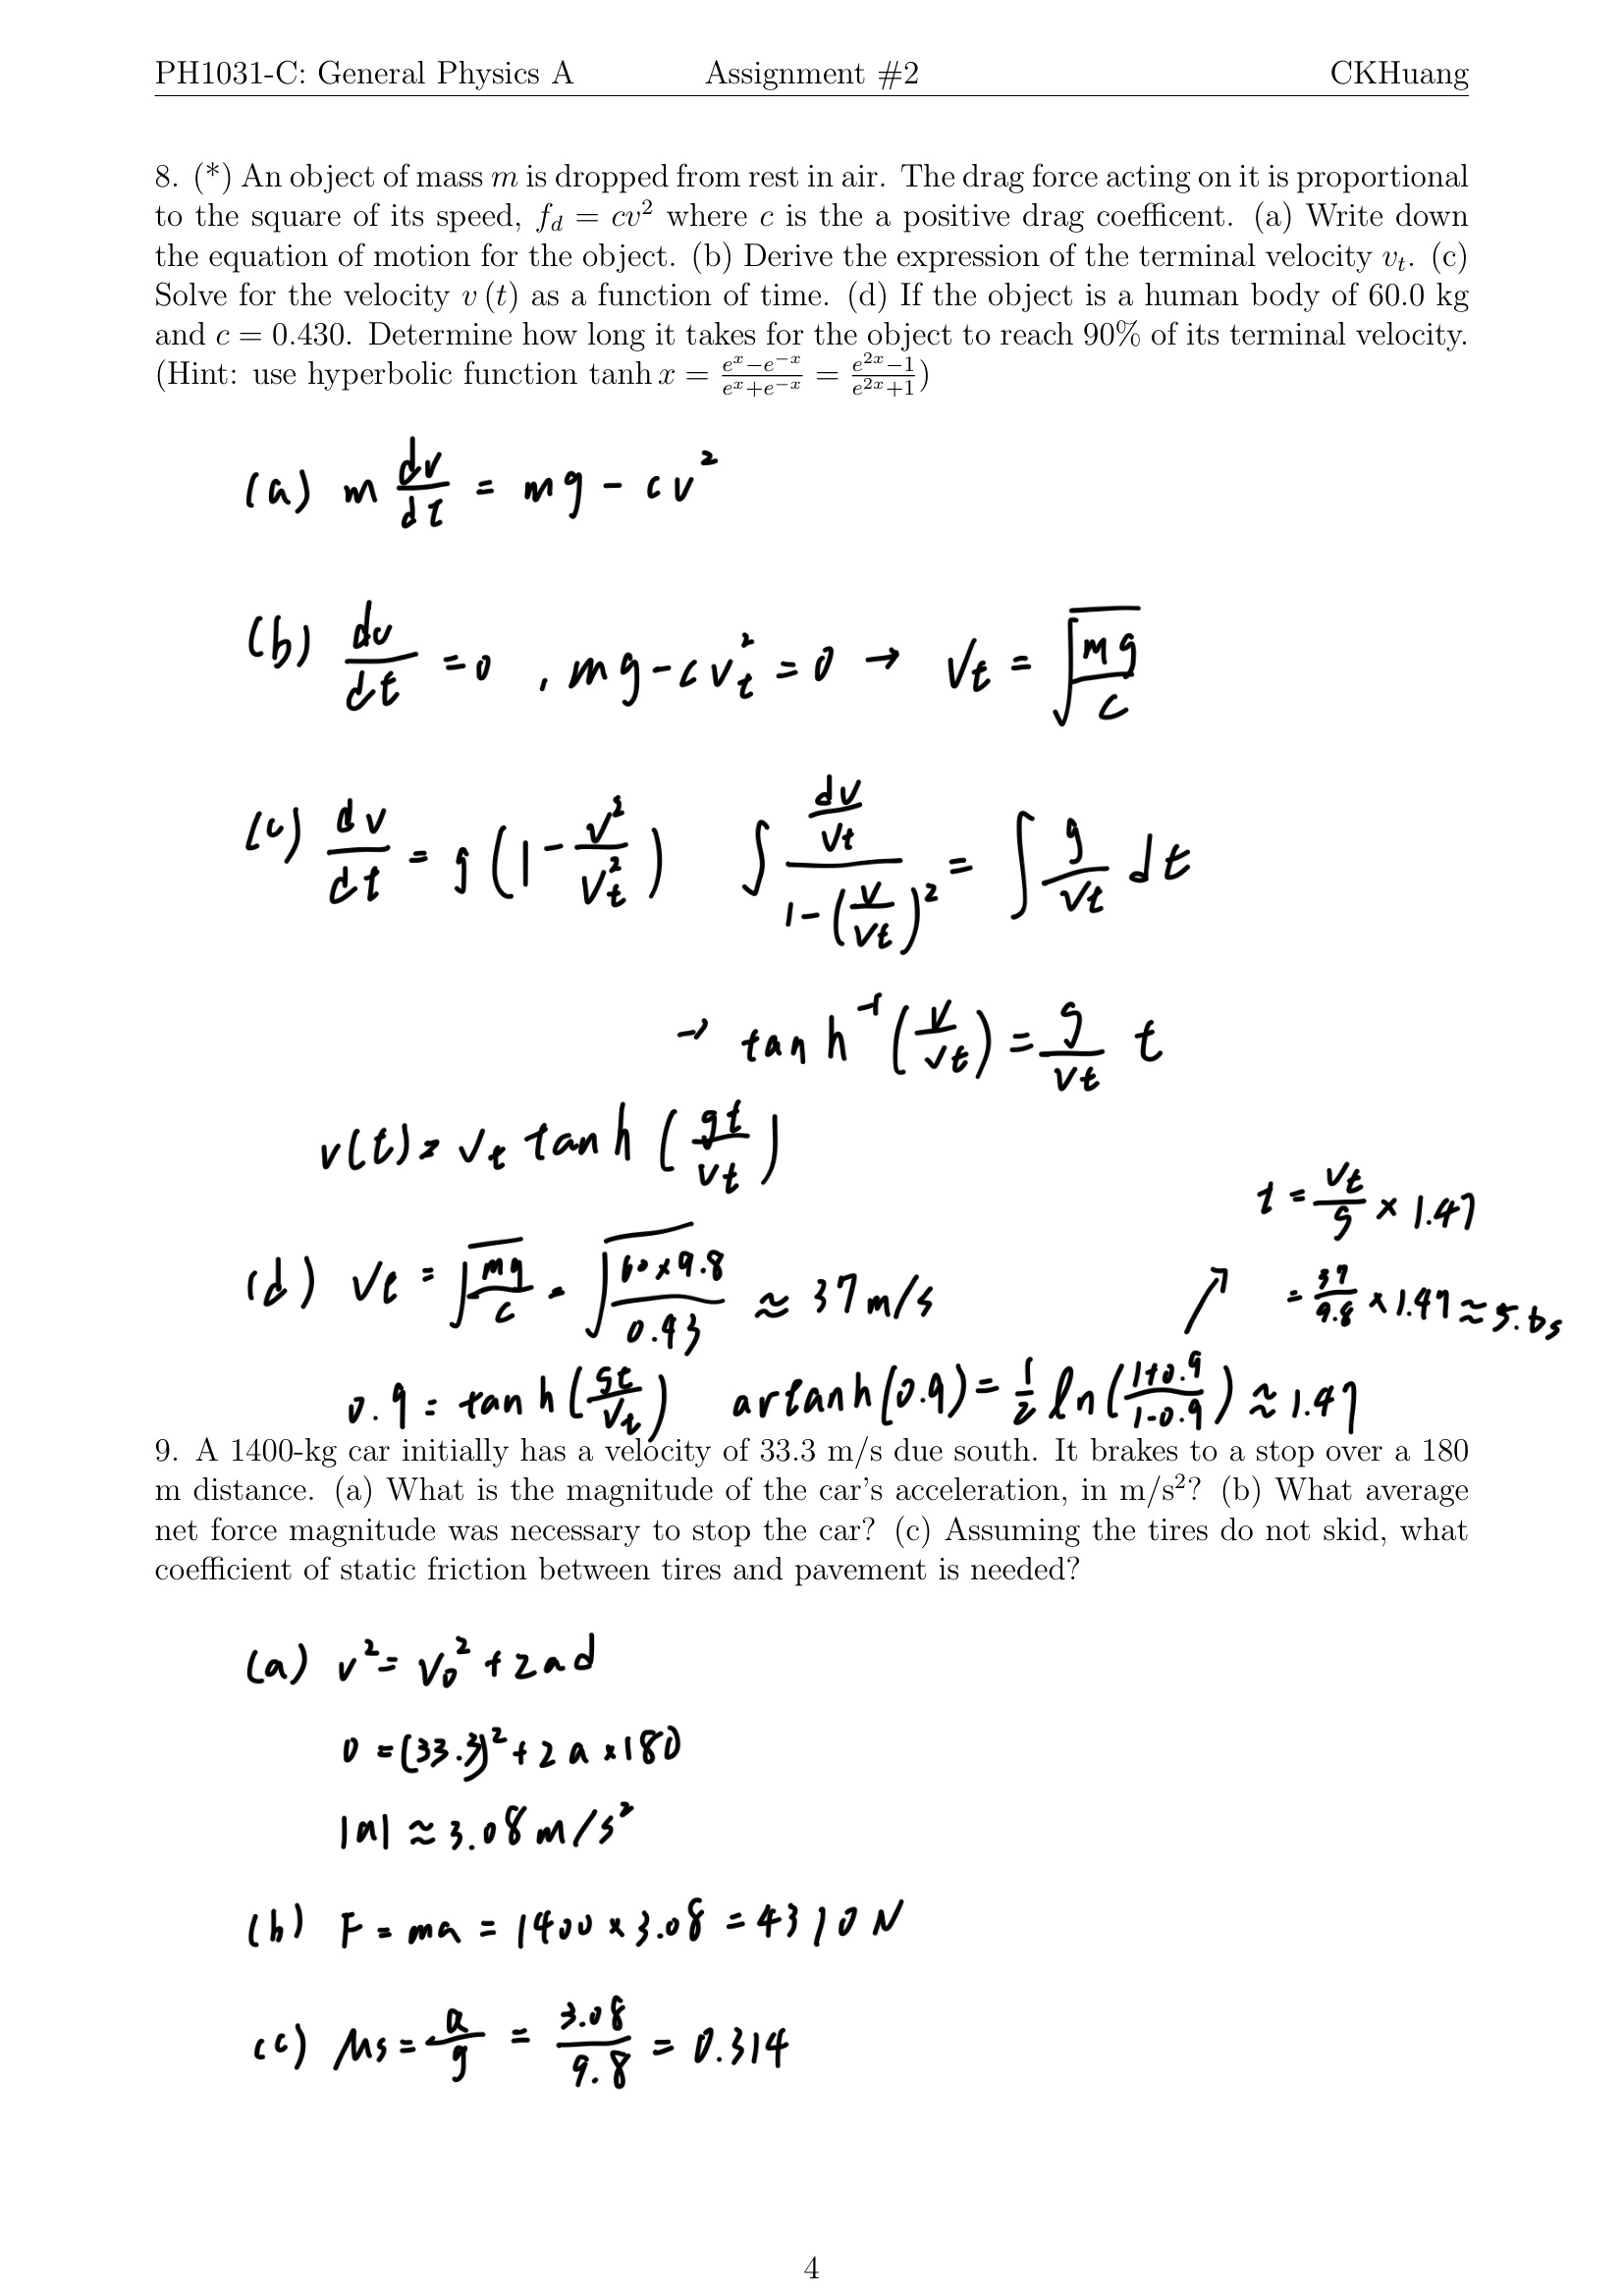 PH1031-C: General Physics A Assignment #2 CKHuang
8. (*) An object of mass m is dropped from rest in air. The drag force acting on it is proportional
to the square of its speed, f_d = cv² where c is the a positive drag coefficent. (a) Write down
the equation of motion for the object. (b) Derive the expression of the terminal velocity v_t. (c)
Solve for the velocity v (t) as a function of time. (d) If the object is a human body of 60.0 kg
and c = 0.430. Determine how long it takes for the object to reach 90% of its terminal velocity.
(Hint: use hyperbolic function tanh x = (e^x−e^{−x})/(e^x+e^{−x}) = (e^{2x}−1)/(e^{2x}+1))
(a) m dv/dt = mg - cv²
(b) dv/dt = 0 , mg - cv_t² = 0 → V_t = √(mg/c)
(c) dv/dt = g (1 - v²/V_t²) ∫ (dv/Vt)/(1-(v/Vt)²) = ∫ g/Vt dt
→ tanh⁻¹ (v/vt) = g/vt t
v(t) = v_t tanh (gt/vt)
t = Vt/g × 1.47
(d) Vt = √(mg/c) = √(60×9.8/0.43) ≈ 37 m/s
= 37/9.8 × 1.47 ≈ 5.6s
0.9 = tanh (gt/Vt) artanh(0.9) = 1/2 ln (1+0.9/1-0.9) ≈ 1.47
9. A 1400-kg car initially has a velocity of 33.3 m/s due south. It brakes to a stop over a 180
m distance. (a) What is the magnitude of the car's acceleration, in m/s²? (b) What average
net force magnitude was necessary to stop the car? (c) Assuming the tires do not skid, what
coefficient of static friction between tires and pavement is needed?
(a) v² = V₀² + 2ad
0 = (33.3)² + 2a × 180
|a| ≈ 3.08 m/s²
(b) F = ma = 1400 × 3.08 = 4310 N
(c) μs = a/g = 3.08/9.8 = 0.314
4